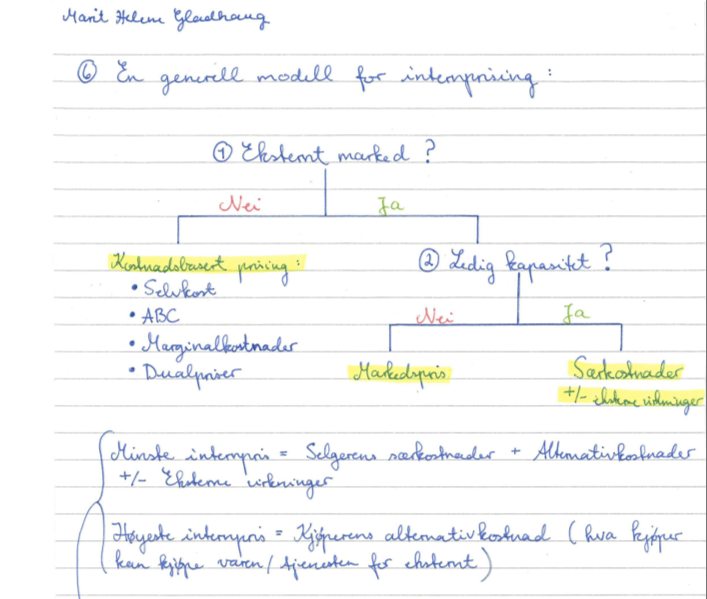 Marit Helene Gladhaug
⑥ En generell modell for internprising :
① Eksternt marked ?
Nei Ja
Kostnadsbasert prising : ② Ledig kapasitet ?
• Selvkost
• ABC Nei Ja
• Marginalkostnader
• Dualpriser Markedspris Særkostnader
+/- eksterne virkninger
Minste internpris = Selgerens særkostnader + Alternativkostnader
+/- Eksterne virkninger
Høyeste internpris = Kjøperens alternativkostnad (hva kjøper
kan kjøpe varen / tjenesten for eksternt)